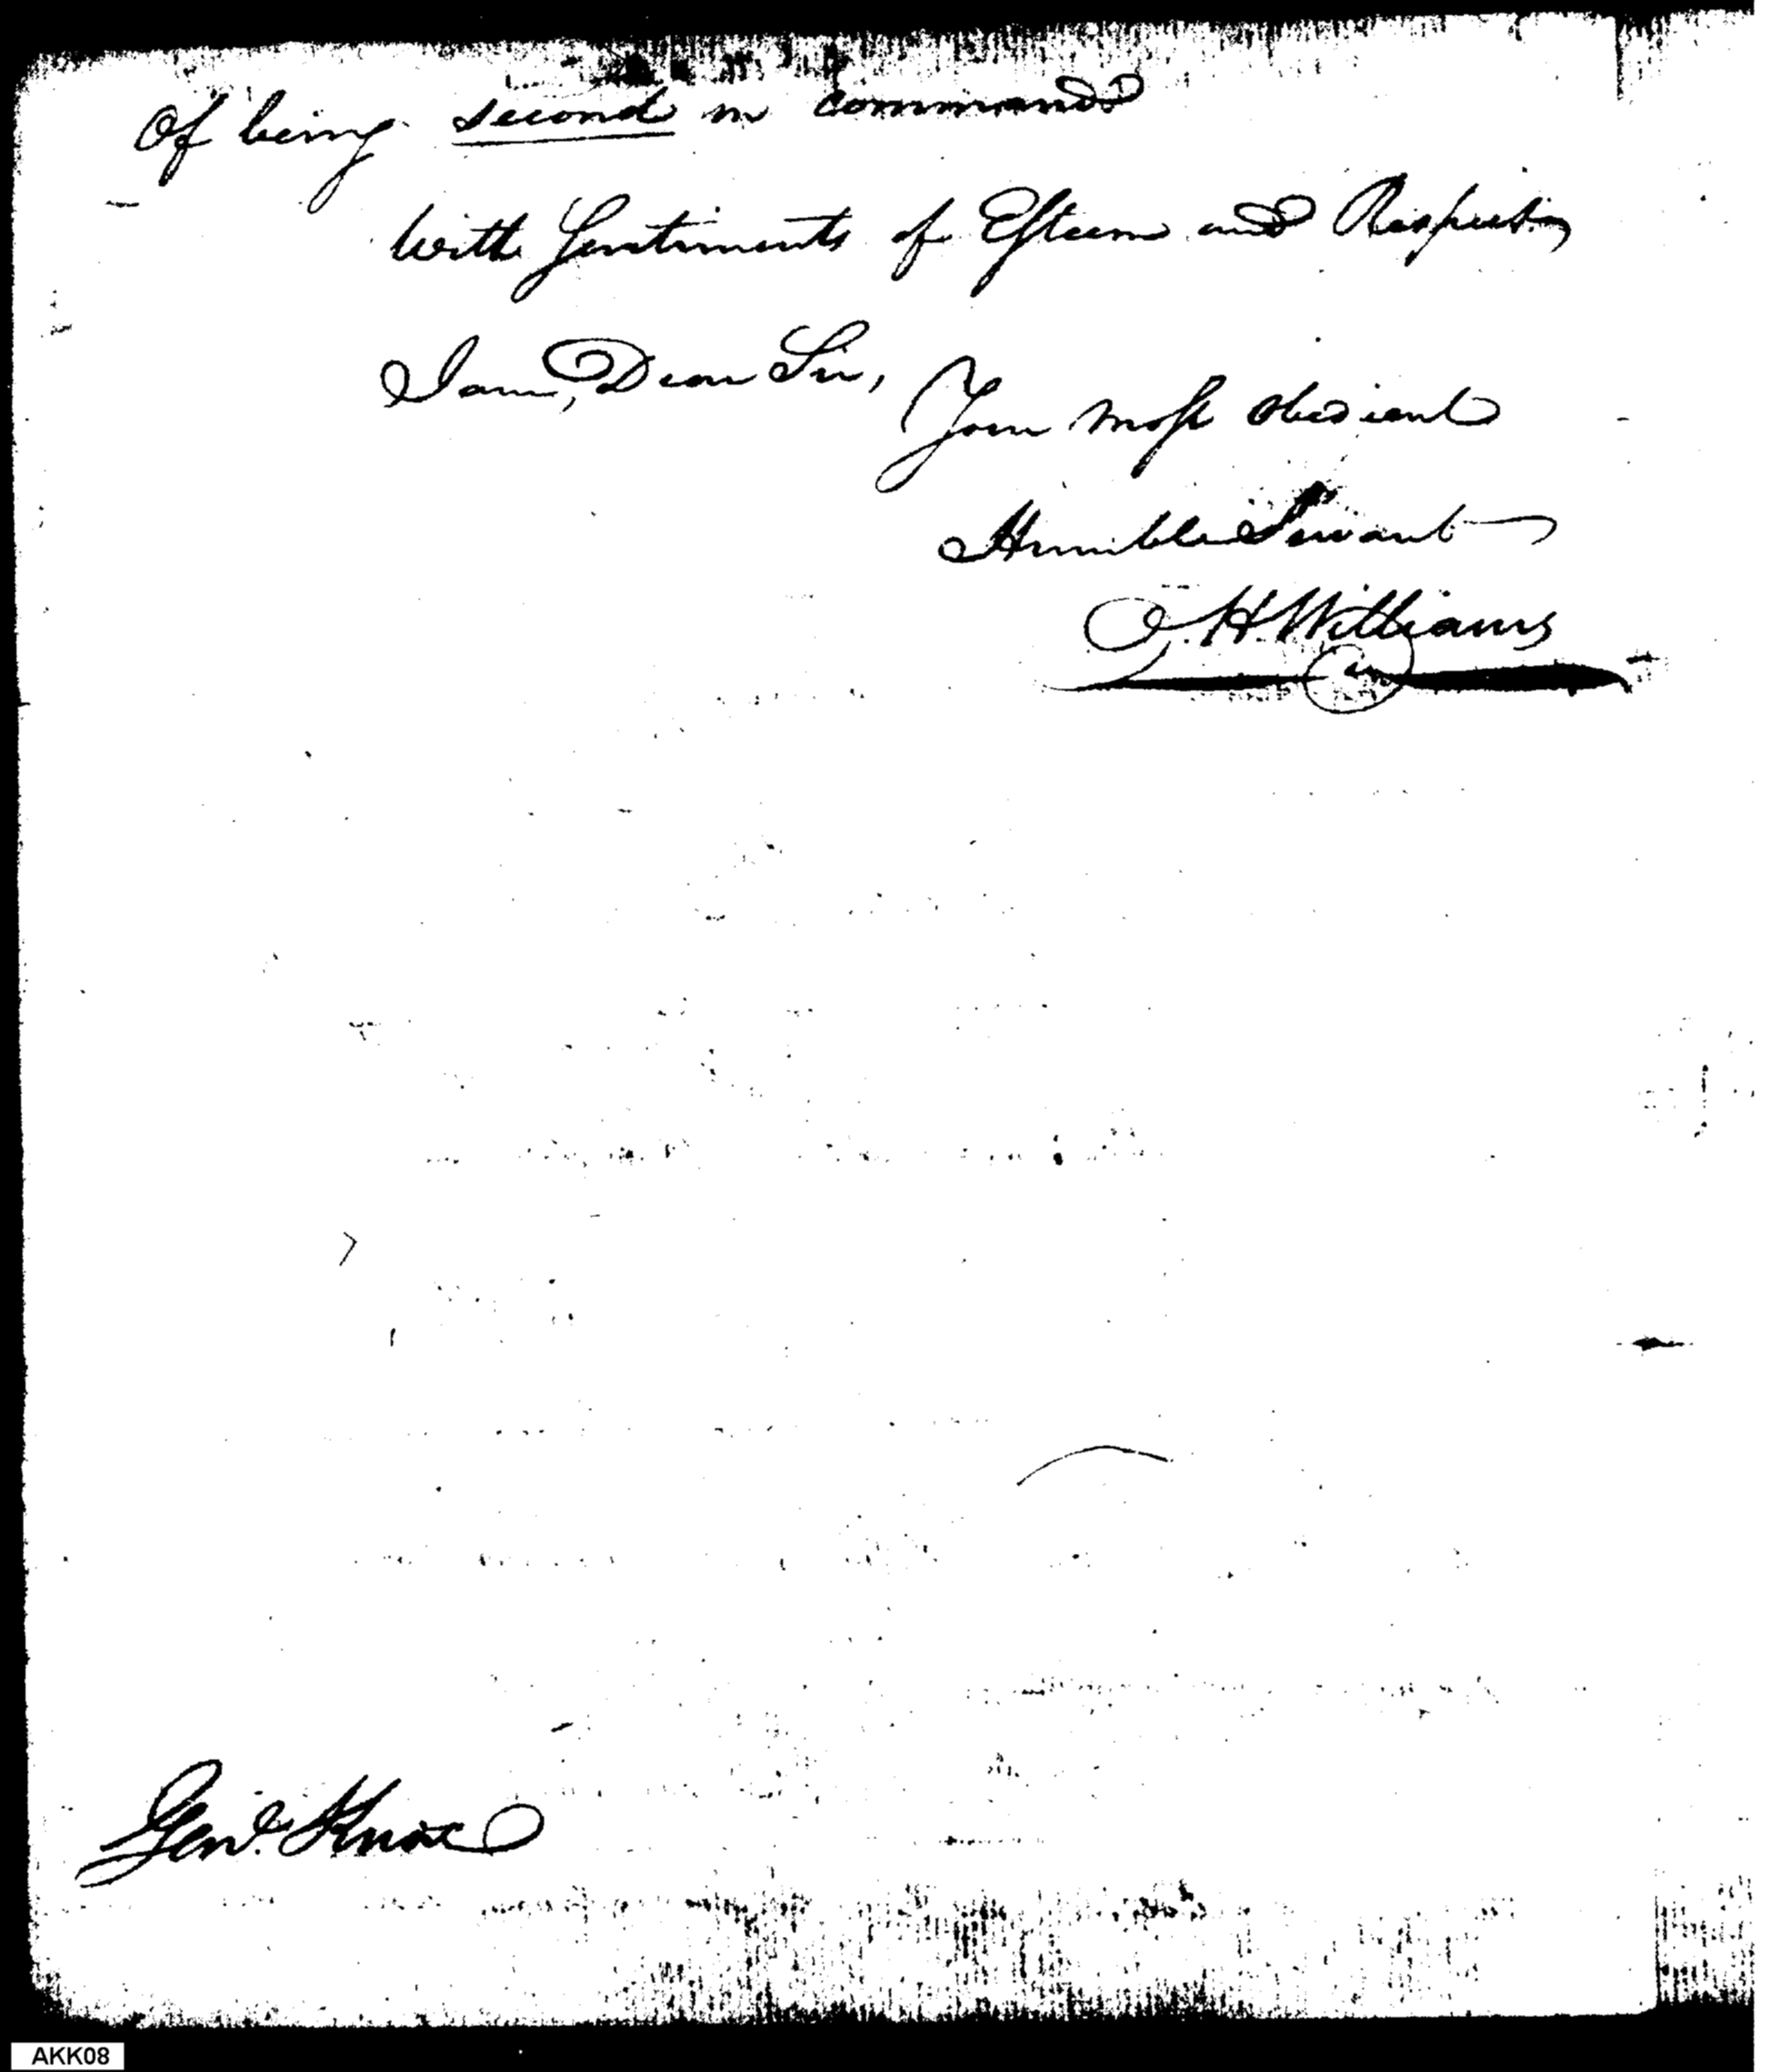 Of being second in command
With Sentiments of Esteem and Respect,
I am, Dear Sir,
Your most obedient
Humble Servant
O. H. Williams
Genl. Knox
AKK08